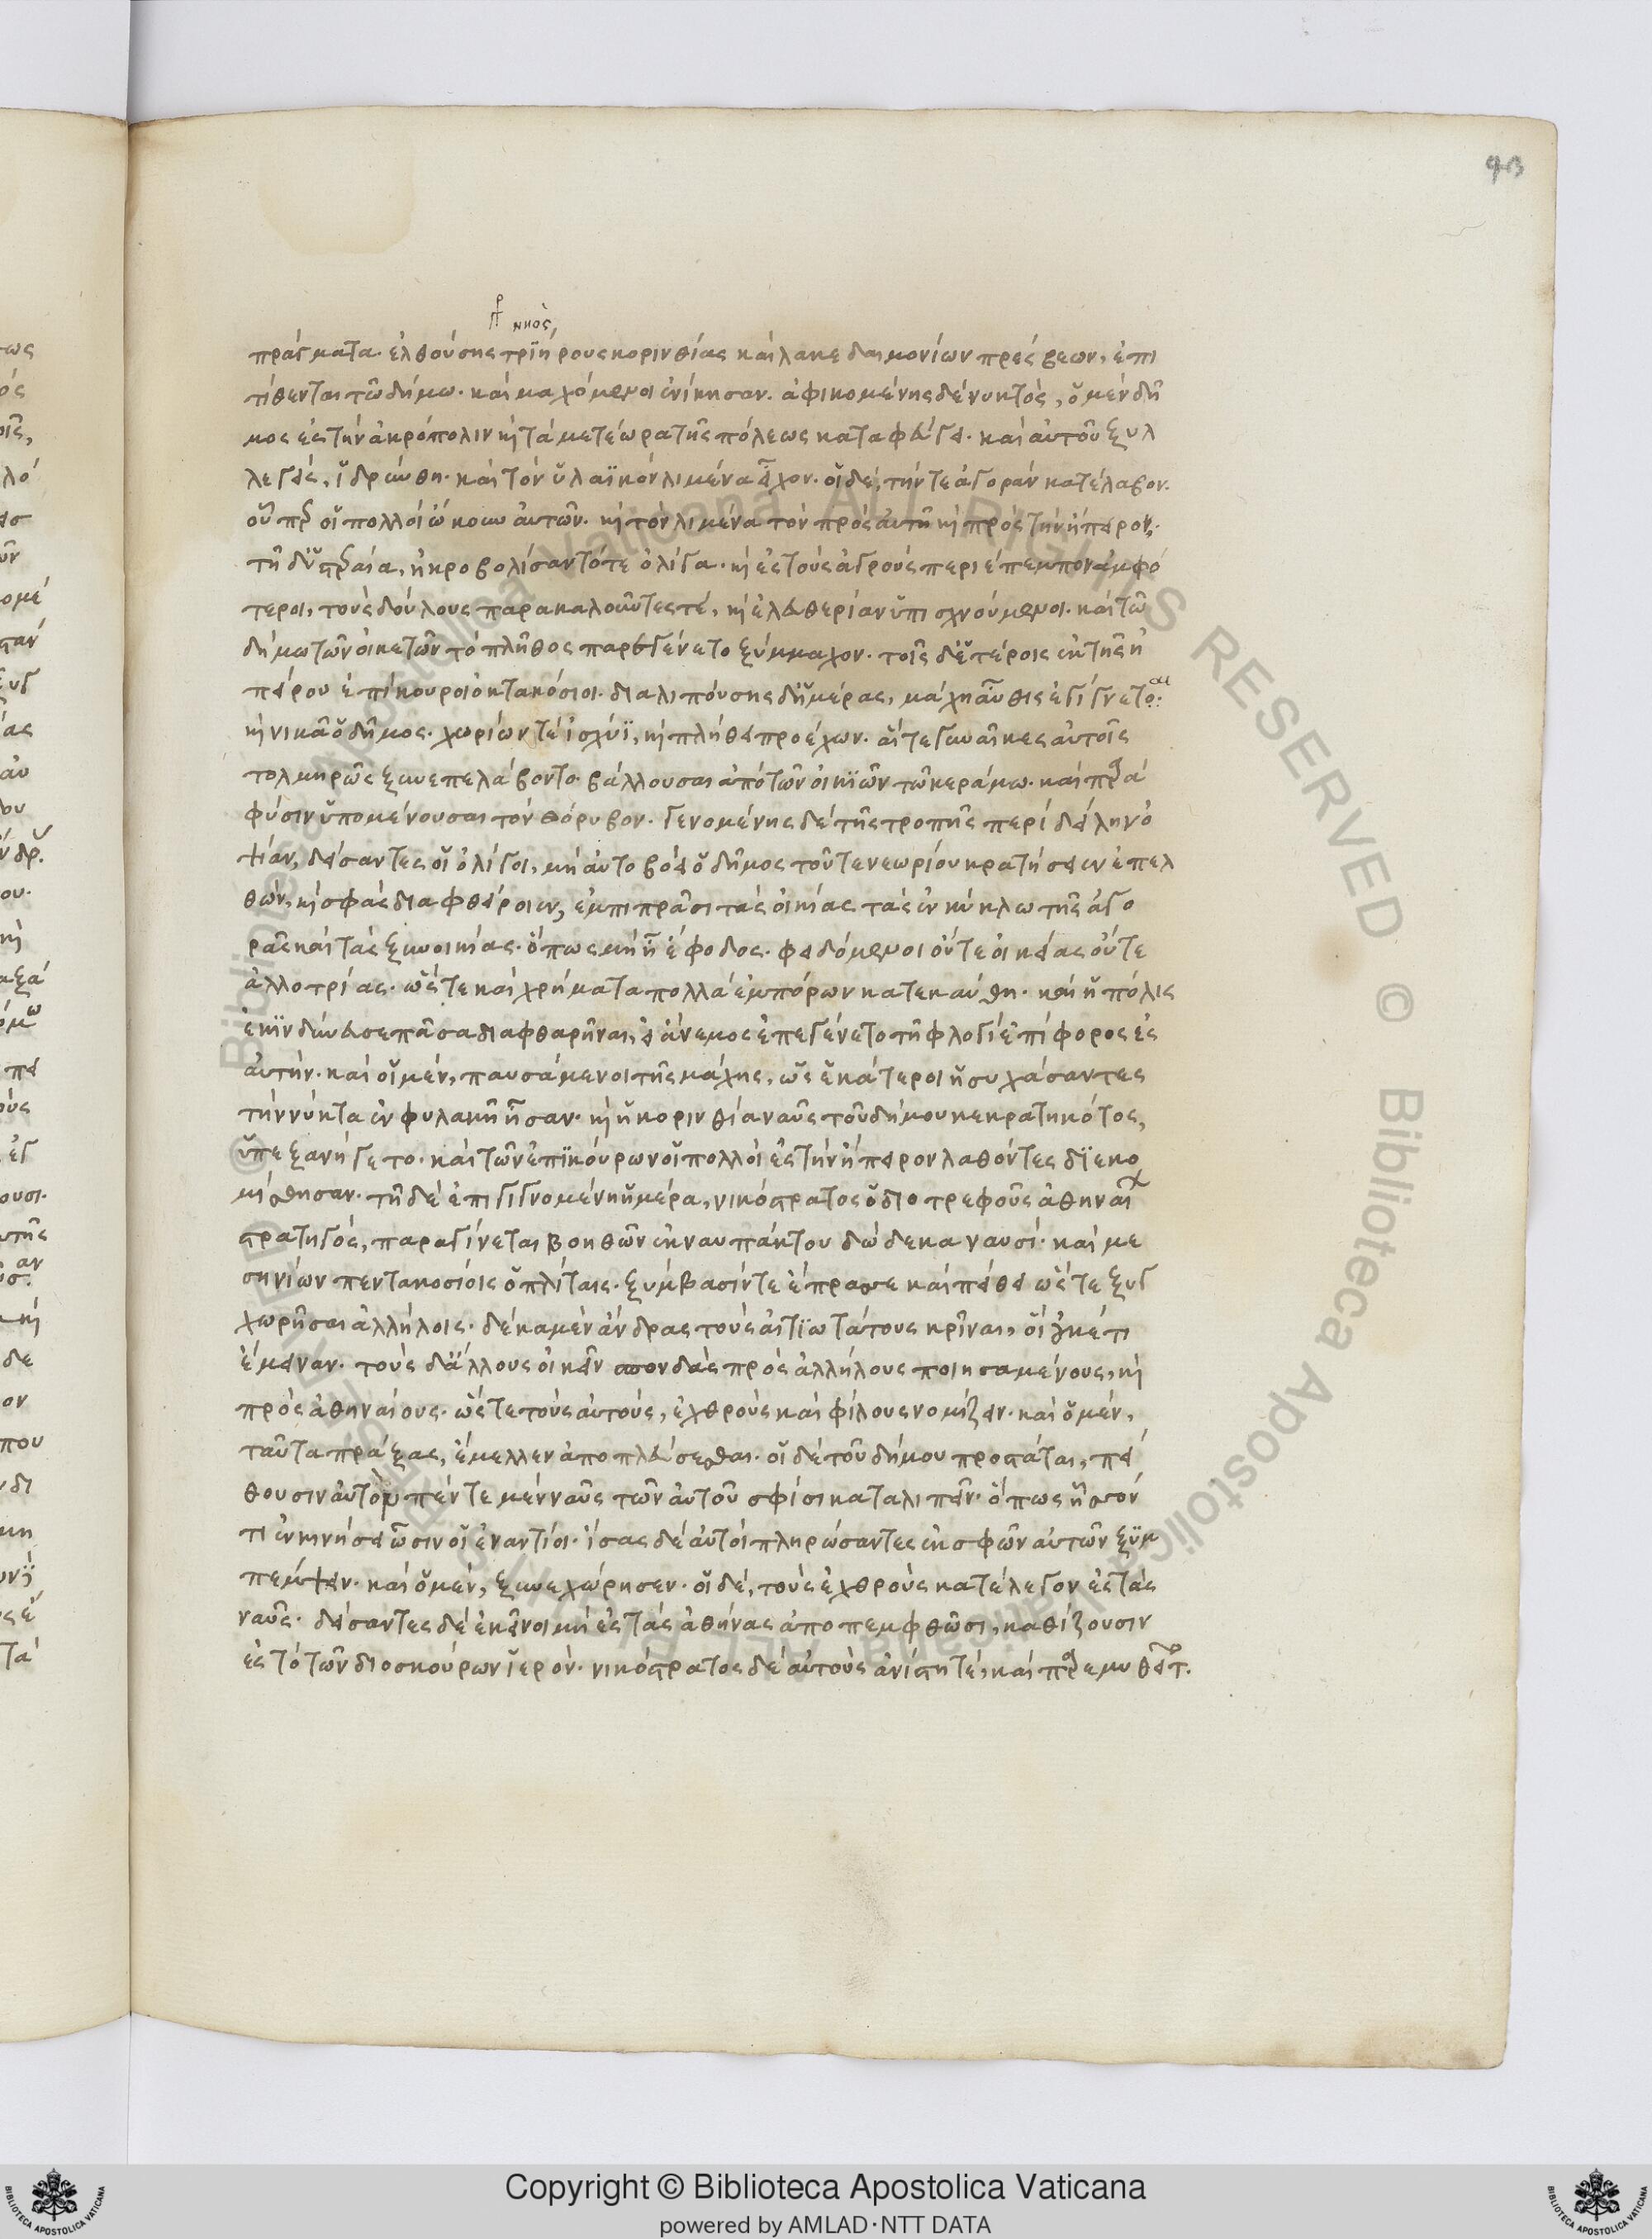 93
πράγματα. ἐλθούσης τριήρους κορινθίας καὶ λακεδαιμονίων πρέσβεων, ἐπι
τίθενται τῶ δήμω. καὶ μαχόμενοι ἐνίκησαν. ἀφικομένης δὲ νυκτὸς, ὁ μὲν δῆ
μος ἐς τὴν ἀκρόπολιν κὶ τὰ μετέωρα τῆς πόλεως καταφεύγει. καὶ αὐτοῦ ξυλ
λεγεὶς, ἱδρύνθη. καὶ τὸν ὑλαϊκὸν λιμένα εἶχον. οἱ δὲ, τήν τε ἀγορὰν κατέλαβον.
οὗπερ οἱ πολλοὶ ὤκουν αὐτῶν. κὶ τὸν λιμένα τὸν πρὸς αὐτῆ κὶ πρὸς τὴν ἤπειρον.
τῆ δ' ὑστεραία, ἠκροβολίσαντό τε ὀλίγα. κὶ ἐς τοὺς ἀγροὺς περιέπεμπον ἀμφό
τεροι, τοὺς δούλους παρακαλοῦντές τε, κὶ ἐλευθερίαν ὑπισχνούμενοι. καὶ τῶ
δήμω τῶν οἰκετῶν τὸ πλῆθος παρεγένετο ξύμμαχον. τοῖς δ' ἑτέροις ἐκ τῆς ἠ
πείρου ἐπίκουροι ὀκτακόσιοι. διαλιπούσης δ' ἡμέρας, μάχη αὖθις ἐγίγνετο.
κὶ νικᾶ ὁ δῆμος. χωρίων τε ἰσχύϊ, κὶ πλήθει προέχων. αἵ τε γυναῖκες αὐτοῖς
τολμηρῶς ξυνεπελάβοντο. βάλλουσαι ἀπὸ τῶν οἰκιῶν τῶ κεράμω. καὶ παρὰ
φύσιν ὑπομένουσαι τὸν θόρυβον. γενομένης δὲ τῆς τροπῆς περὶ δείλην ὀ
ψίαν, δείσαντες οἱ ὀλίγοι, μὴ αὐτοβοεὶ ὁ δῆμος τοῦ τε νεωρίου κρατήσειεν ἐπελ
θὼν, κὶ σφᾶς διαφθείροιεν, ἐμπιπρᾶσι τὰς οἰκίας τὰς ἐν κύκλω τῆς ἀγο
ρᾶς καὶ τὰς ξυνοικίας. ὅπως μὴ ἦ ἔφοδος. φειδόμενοι οὔτε οἰκείας οὔτε
ἀλλοτρίας. ὥστε καὶ χρήματα πολλὰ ἐμπόρων κατεκαύθη. καὶ ἡ πόλις
ἐκινδύνευσε πᾶσα διαφθαρῆναι, εἰ ἄνεμος ἐπεγένετο τῆ φλογὶ ἐπίφορος ἐς
αὐτήν. καὶ οἱ μὲν, παυσάμενοι τῆς μάχης, ὡς ἑκάτεροι ἡσυχάσαντες
τὴν νύκτα ἐν φυλακῆ ἦσαν. κὶ ἡ κορινθία ναῦς τοῦ δήμου κεκρατηκότος,
ὑπεξανήγετο. καὶ τῶν ἐπικούρων οἱ πολλοὶ ἐς τὴν ἤπειρον λαθόντες διεκο
μίσθησαν. τῆ δὲ ἐπιγιγνομένη ἡμέρα, νικόστρατος ὁ διοτρεφοῦς ἀθηναί
στρατηγὸς, παραγίνεται βοηθῶν ἐκ ναυπάκτου δώδεκα ναυσί. καὶ με
σηνίων πεντακοσίοις ὁπλίταις. ξύμβασίν τε ἔπρασσε καὶ πείθει ὥστε ξυγ
χωρῆσαι ἀλλήλοις. δέκα μὲν ἄνδρας τοὺς αἰτιωτάτους κρῖναι, οἳ οὐκέτι
ἔμειναν. τοὺς δ' ἄλλους οἰκεῖν σπονδὰς πρὸς ἀλλήλους ποιησαμένους, κὶ
πρὸς ἀθηναίους. ὥστε τοὺς αὐτοὺς, ἐχθροὺς καὶ φίλους νομίζειν. καὶ ὁ μὲν,
ταῦτα πράξας, ἔμελλεν ἀποπλεύσεσθαι. οἱ δὲ τοῦ δήμου προστάται, πεί
θουσιν αὐτὸν πέντε μὲν ναῦς τῶν αὐτοῦ σφίσι καταλιπεῖν. ὅπως ἧσσόν
τι ἐν κινήσει ὦσιν οἱ ἐναντίοι. ἴσας δὲ αὐτοὶ πληρώσαντες ἐκ σφῶν αὐτῶν ξυμ
πέμψειν. καὶ ὁ μὲν, ξυνεχώρησεν. οἱ δὲ, τοὺς ἐχθροὺς κατέλεγον ἐς τὰς
ναῦς. δείσαντες δὲ ἐκεῖνοι μὴ ἐς τὰς ἀθήνας ἀποπεμφθῶσι, καθίζουσιν
ἐς τὸ τῶν διοσκούρων ἱερόν. νικόστρατος δὲ αὐτοὺς ἀνίστη τὲ, καὶ παρεμυθεῖτο.
Copyright © Biblioteca Apostolica Vaticana
powered by AMLAD·NTT DATA